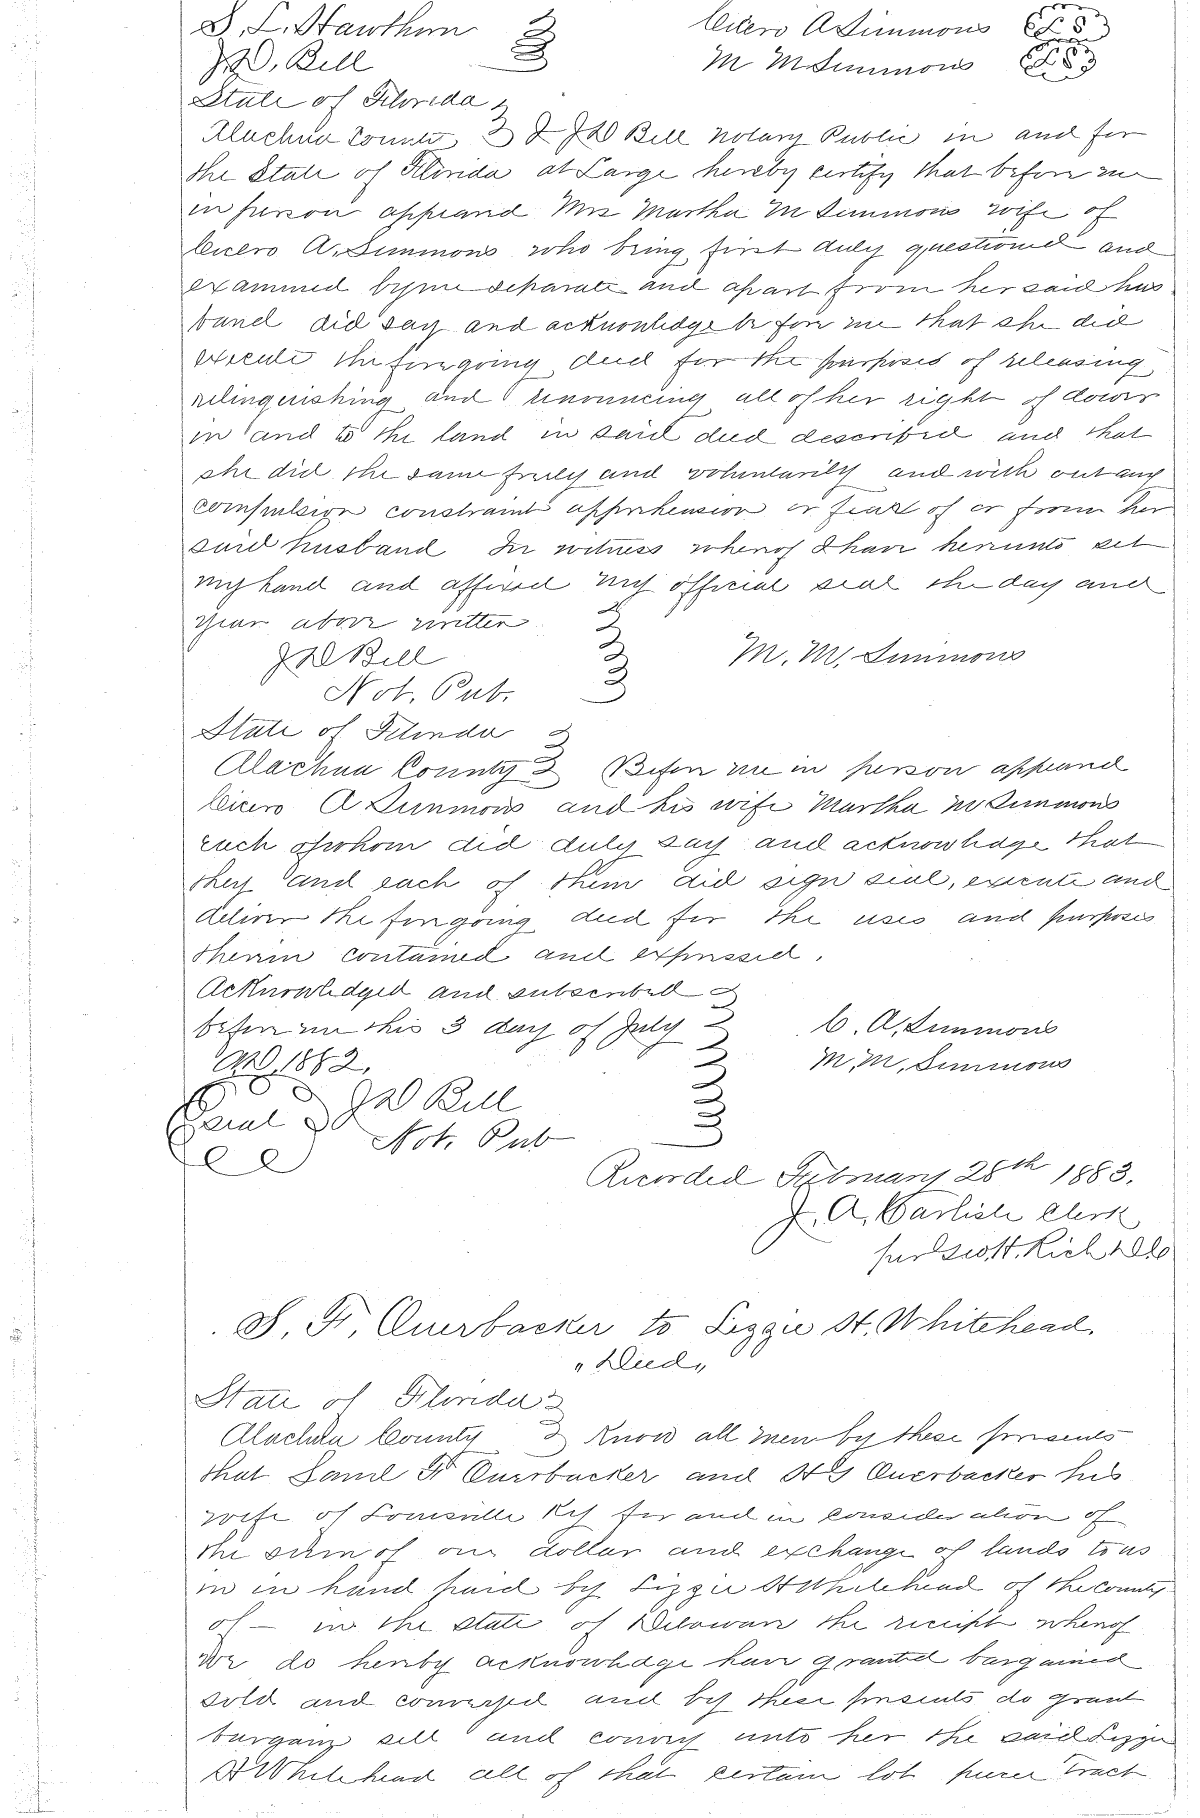 S. L. Hawthorn Cicero A Simmons L S
J D. Bell M M Simmons L S
State of Florida
Alachua County I J D Bell Notary Public in and for
the State of Florida at Large hereby certify that before me
in person appeard Mrs Martha M Simmons wife of
Cicero A. Simmons who being first duly questioned and
examined by me separate and apart from her said hus
band did say and acknowledge before me that she did
execute the foregoing deed for the purposes of releasing
relinquishing and renouncing all of her right of dower
in and to the land in said deed described and that
she did the same freely and voluntarily and with out any
compulsion constraint apprehension or fear of or from her
said husband In witness whereof I have hereunto set
my hand and affixed my official seal the day and
year above written
J D Bell M. M. Simmons
Not. Pub.
State of Florida
Alachua County Before me in person appeard
Cicero A Simmons and his wife Martha M Simmons
each of whom did duly say and acknowledge that
they and each of them did sign seal, execute and
deliver the foregoing deed for the uses and purposes
therein contained and expressed.
Acknowledged and subscribed
before me this 3 day of July C. A. Simmons
AD, 1882. M. M. Simmons
Seal J D Bell
Not. Pub
Recorded February 28th 1883.
J. A. Carlisle Clerk
per Geo. H. Rich D C
S. F. Ouerbacker to Lizzie H. Whitehead.
"Deed"
State of Florida
Alachua County Know all men by these presents
that Saml F Ouerbacker and H S Ouerbacker his
wife of Louisville Ky for and in consideration of
the sum of one dollar and exchange of lands to us
in in hand paid by Lizzie H Whitehead of the County
of — in the state of Delaware the receipt whereof
we do hereby acknowledge have granted bargained
sold and conveyed and by these presents do grant
bargain sell and convey unto her the said Lizzie
H Whitehead all of that certain lot piece tract